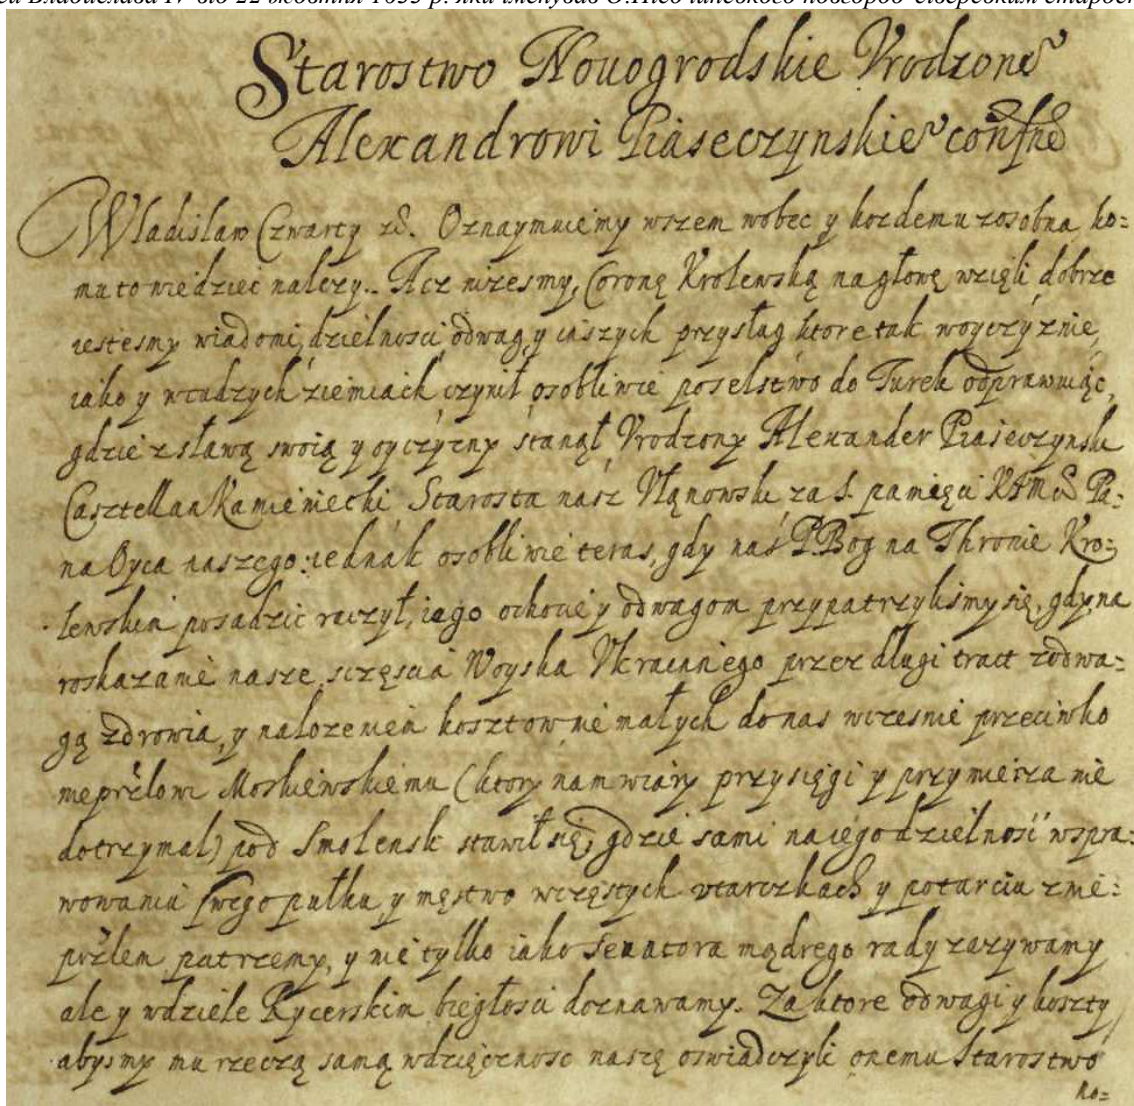 Владислава IV від 22 жовтня 1633 р. яка іменував О.Пісочинського новгород-сіверським старост
Starostwo Nouogrodskie Vrodzone°
Alexandrowi Piaseczynskie° conferd
Wladislaw Czwarty etc. Oznaymuiemy wszem wobec y kozdemu zosobna, ko=
mu to wiedziec nalezy. Acz nizesmy, Coronę Krolewską na głowę wzięli dobrze
iestesmy wiadomi, dzielnosci, odwag, y inszych przysług ktore tak woyczyznie,
iako y wcudzych ziemiach czynił, osobliwie poselstwo do Turek odprawuiąc,
gdzie z sławą swoią y oyczyzny stanął, Vrodzony Alexander Piaseczynski
Casztellan Kamieniecki Starosta nasz Vłanowski za s. pamięci KJM Pa=
na Oyca naszego: iednak osobliwie teras, gdy nas P. Bog na Thronie Kro=
lewskim posadzic raczył, iego ochocie y odwagom przypatrzylismy się, gdy na
roskazanie nasze, częscia Woyska Vkrainnego przez długi tract zodwa=
gą zdrowia, y nałozeniem kosztow nie małych do nas wczesnie przeciwko
nieprzlowi Moskiewskiemu (ktory nam wiary przysięgi y przymierza nie
dotrzymal) pod Smolensk stawił się, gdzie sami na iego dzielnosć wspra=
wowaniu swego pułku y męstwo wczęstych vtarczkach y potarciu znie=
przlem patrzemy, y nie tylko iako Senatora mądrego rady zazywamy
ale y wdziele Rycerskim biegłosci doznawamy. Za ktore odwagi y koszty
abysmy mu rzeczą samą wdzięcznosc naszę oswiadczyli onemu Starostwo
No=